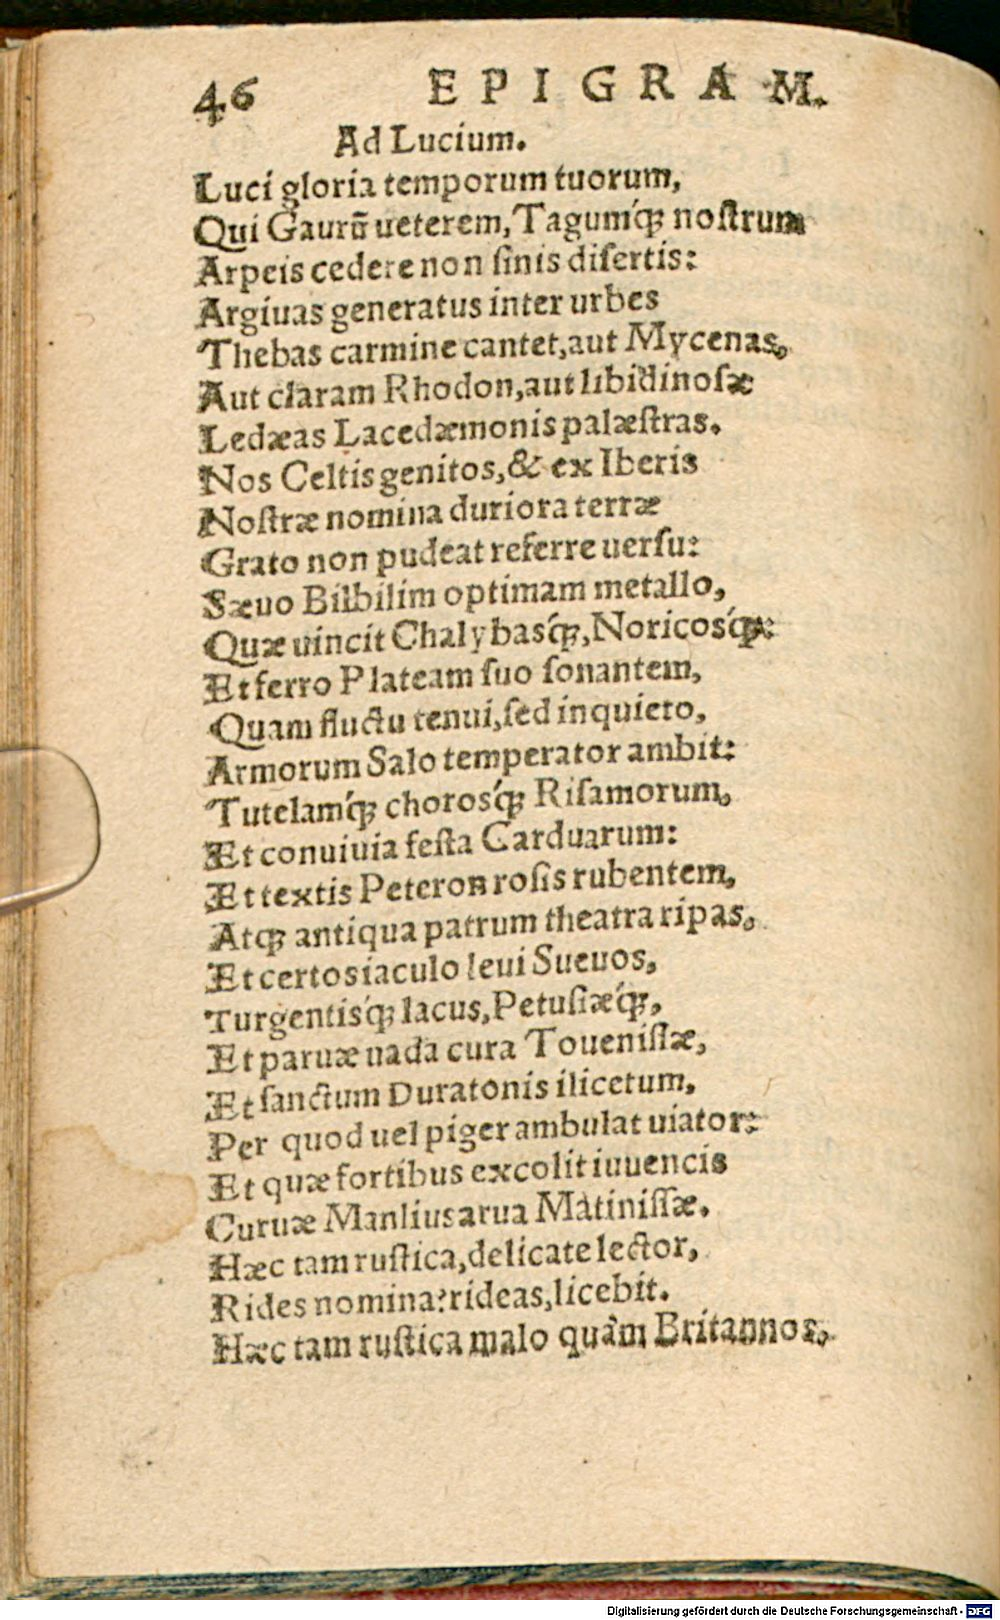 46 EPIGRAM.
Ad Lucium.
Luci gloria temporum tuorum,
Qui Gaurū ueterem, Tagumq́ꝫ nostrum
Arpeis cedere non sinis disertis:
Argiuas generatus inter urbes
Thebas carmine cantet, aut Mycenas,
Aut claram Rhodon, aut libidinosæ
Ledæas Lacedæmonis palæstras.
Nos Celtis genitos, & ex Iberis
Nostræ nomina duriora terræ
Grato non pudeat referre uersu:
Sæuo Bilbilim optimam metallo,
Quæ uincit Chalybasq́ꝫ, Noricosq́ꝫ:
Et ferro Plateam suo sonantem,
Quam fluctu tenui, sed inquieto,
Armorum Salo temperator ambit:
Tutelamq́ꝫ chorosq́ꝫ Risamorum,
Et conuiuia festa Carduarum:
Et textis Peteron rosis rubentem,
Atqꝫ antiqua patrum theatra ripas,
Et certos iaculo leui Sueuos,
Turgentisq́ꝫ lacus, Petusiæq́ꝫ,
Et paruæ uada cura Touenissæ,
Et sanctum Duratonis ilicetum,
Per quod uel piger ambulat uiator:
Et quæ fortibus excolit iuuencis
Curuæ Manlius arua Matinissæ.
Hæc tam rustica, delicate lector,
Rides nomina? rideas, licebit.
Hæc tam rustica malo quàm Britannos,
Digitalisierung gefördert durch die Deutsche Forschungsgemeinschaft - DFG